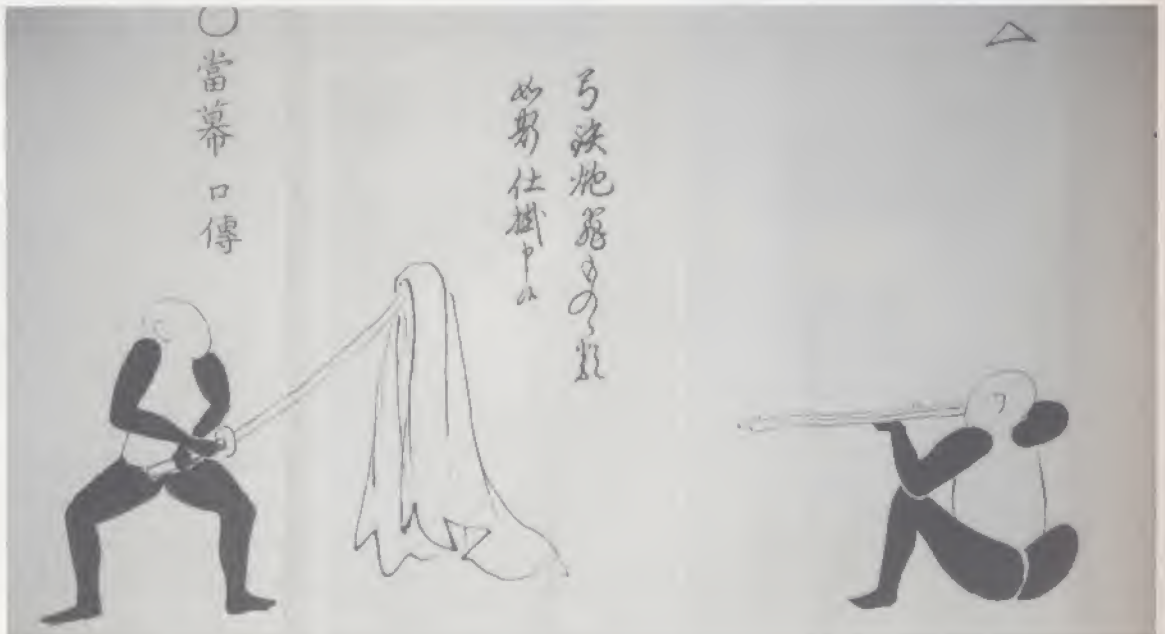 弓鉄炮飛もの類
如斯仕掛申候
〇當幕 口傳